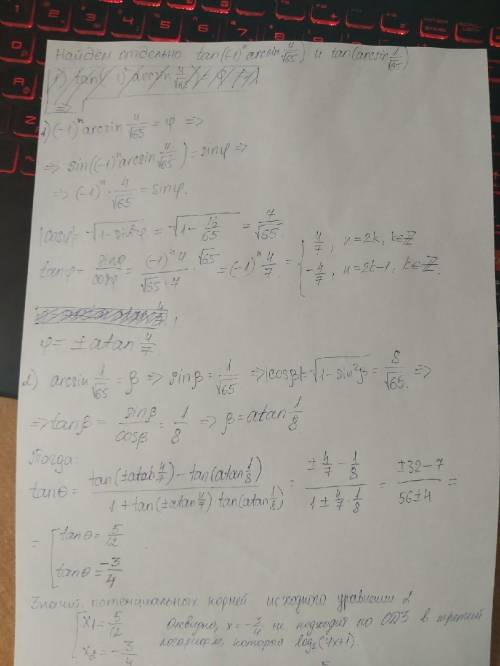 Найдём отдельно tan((-1)ⁿ arcsin 4/√65) и tan(arcsin 1/√65)
=>
1) (-1)ⁿ arcsin 4/√65 = φ =>
=> sin((-1)ⁿ arcsin 4/√65) = sinφ =>
=> (-1)ⁿ · 4/√65 = sinφ.
|cosφ| = √(1-sin²φ) = √(1- 16/65) = 7/√65.
tanφ = sinφ/cosφ = (-1)ⁿ4/√65 · √65/7 = (-1)ⁿ 4/7 = { 4/7, n=2k, k∈Z
-4/7, n=2k-1, k∈Z.
φ = ± atan 4/7
2) arcsin 1/√65 = β => sinβ = 1/√65 => |cosβ| = √(1-sin²β) = 8/√65. =>
=> tanβ = sinβ/cosβ = 1/8 => β = atan 1/8
Тогда:
tanθ = (tan(±atan 4/7) - tan(atan 1/8))/(1 + tan(±atan 4/7) tan(atan 1/8)) = (±4/7 - 1/8)/(1 ± 4/7 · 1/8) = (±32-7)/(56±4) =
= [ tanθ = 5/12
tanθ = -3/4
Значит потенциальных корней исходного уравнения 2
[ x₁ = 5/12 Очевидно, x = -3/4 не подходит по ОДЗ в третий
x₂ = -3/4 логарифм, которая log₂(4x+1).